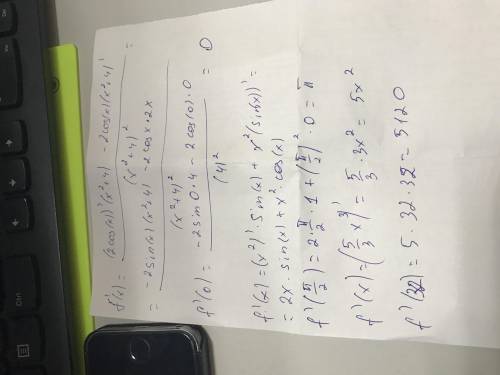 f'(x) = ((2cos(x))'(x²+4) - 2cos(x)(x²+4)')/(x²+4)² =
= (-2sin(x)(x²+4) - 2cosx·2x)/(x²+4)²
f'(0) = (-2sin0·4 - 2cos(0)·0)/(4)² = 0
f'(x) = (x²)'·sin(x) + x²(sin(x))' =
= 2x·sin(x) + x²·cos(x)
f'(π/2) = 2·π/2·1 + (π/2)²·0 = π
f'(x) = (5/3 x³)' = 5/3·3x² = 5x²
f'(32) = 5·32·32 = 5120